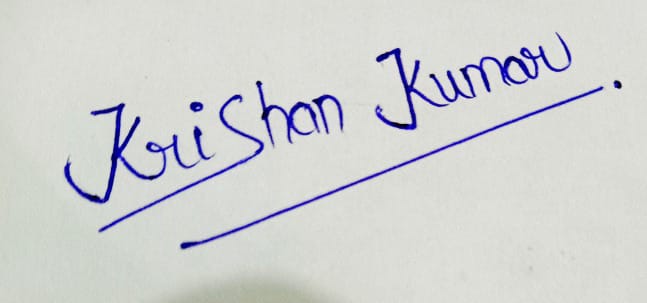 KriShan Kumar.